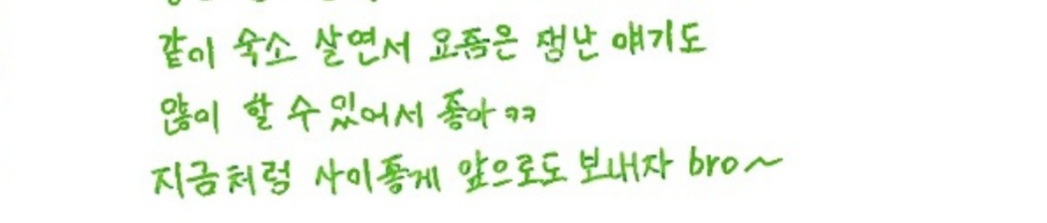 같이 숙소 살면서 요즘은 잼난 얘기도
많이 할 수 있어서 좋아 ㅋㅋ
지금처럼 사이좋게 앞으로도 보내자 bro~